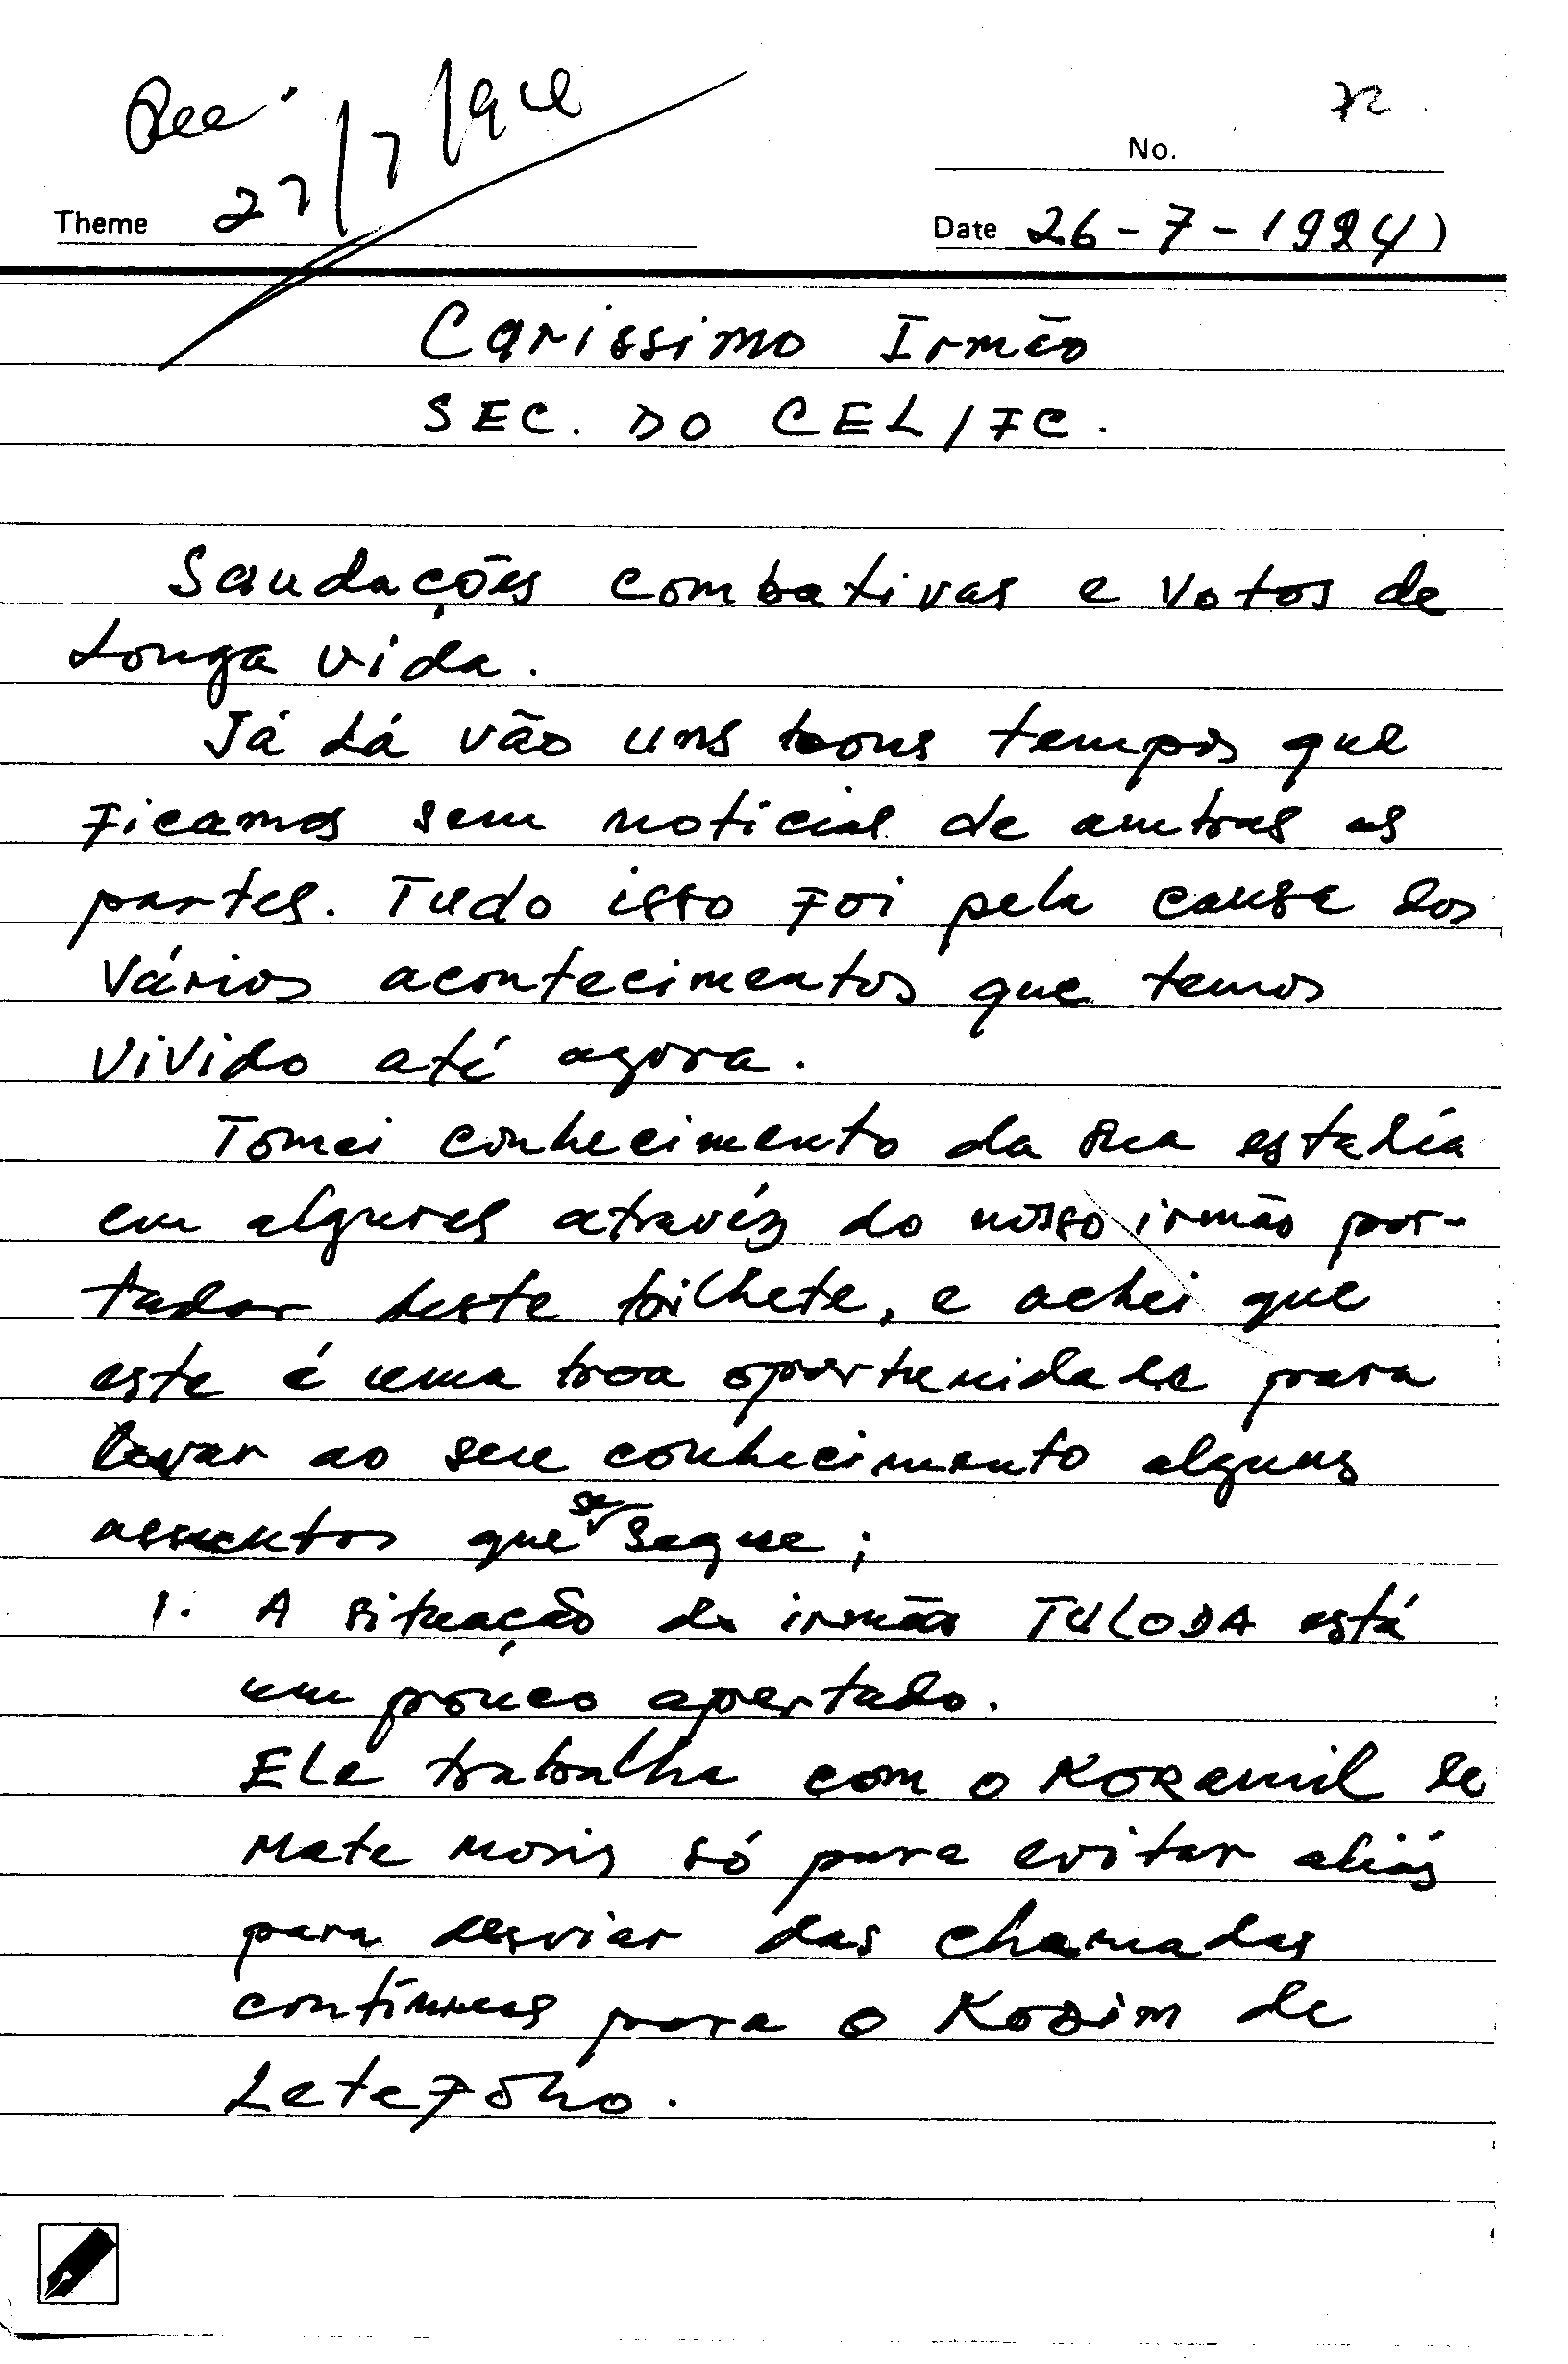 Rec. 27/7/94
72
No.
Theme
Date 26-7-1994)
Carissimo Irmão
SEC. DO CEL/FC.
Saudações combativas e votos de
Longa vida.
Já Lá vão uns bons tempos que
Ficamos sem noticias de ambas as
partes. Tudo isso Foi pela causa dos
vários acontecimentos que temos
vivido até agora.
Tomei conhecimento da sua estadía
em algures atravéz do nosso irmão por-
tador deste bilhete, e achei que
este é uma boa oportunidade para
levar ao seu conhecimento alguns
assuntos que se segue;
1. A situação do irmão TULODA está
um pouco apertado.
Ele trabalha com o KORamil de
Mate Moris só para evitar aliás
para desviar das chamadas
contínuas para o KODim de
LeteFóho.